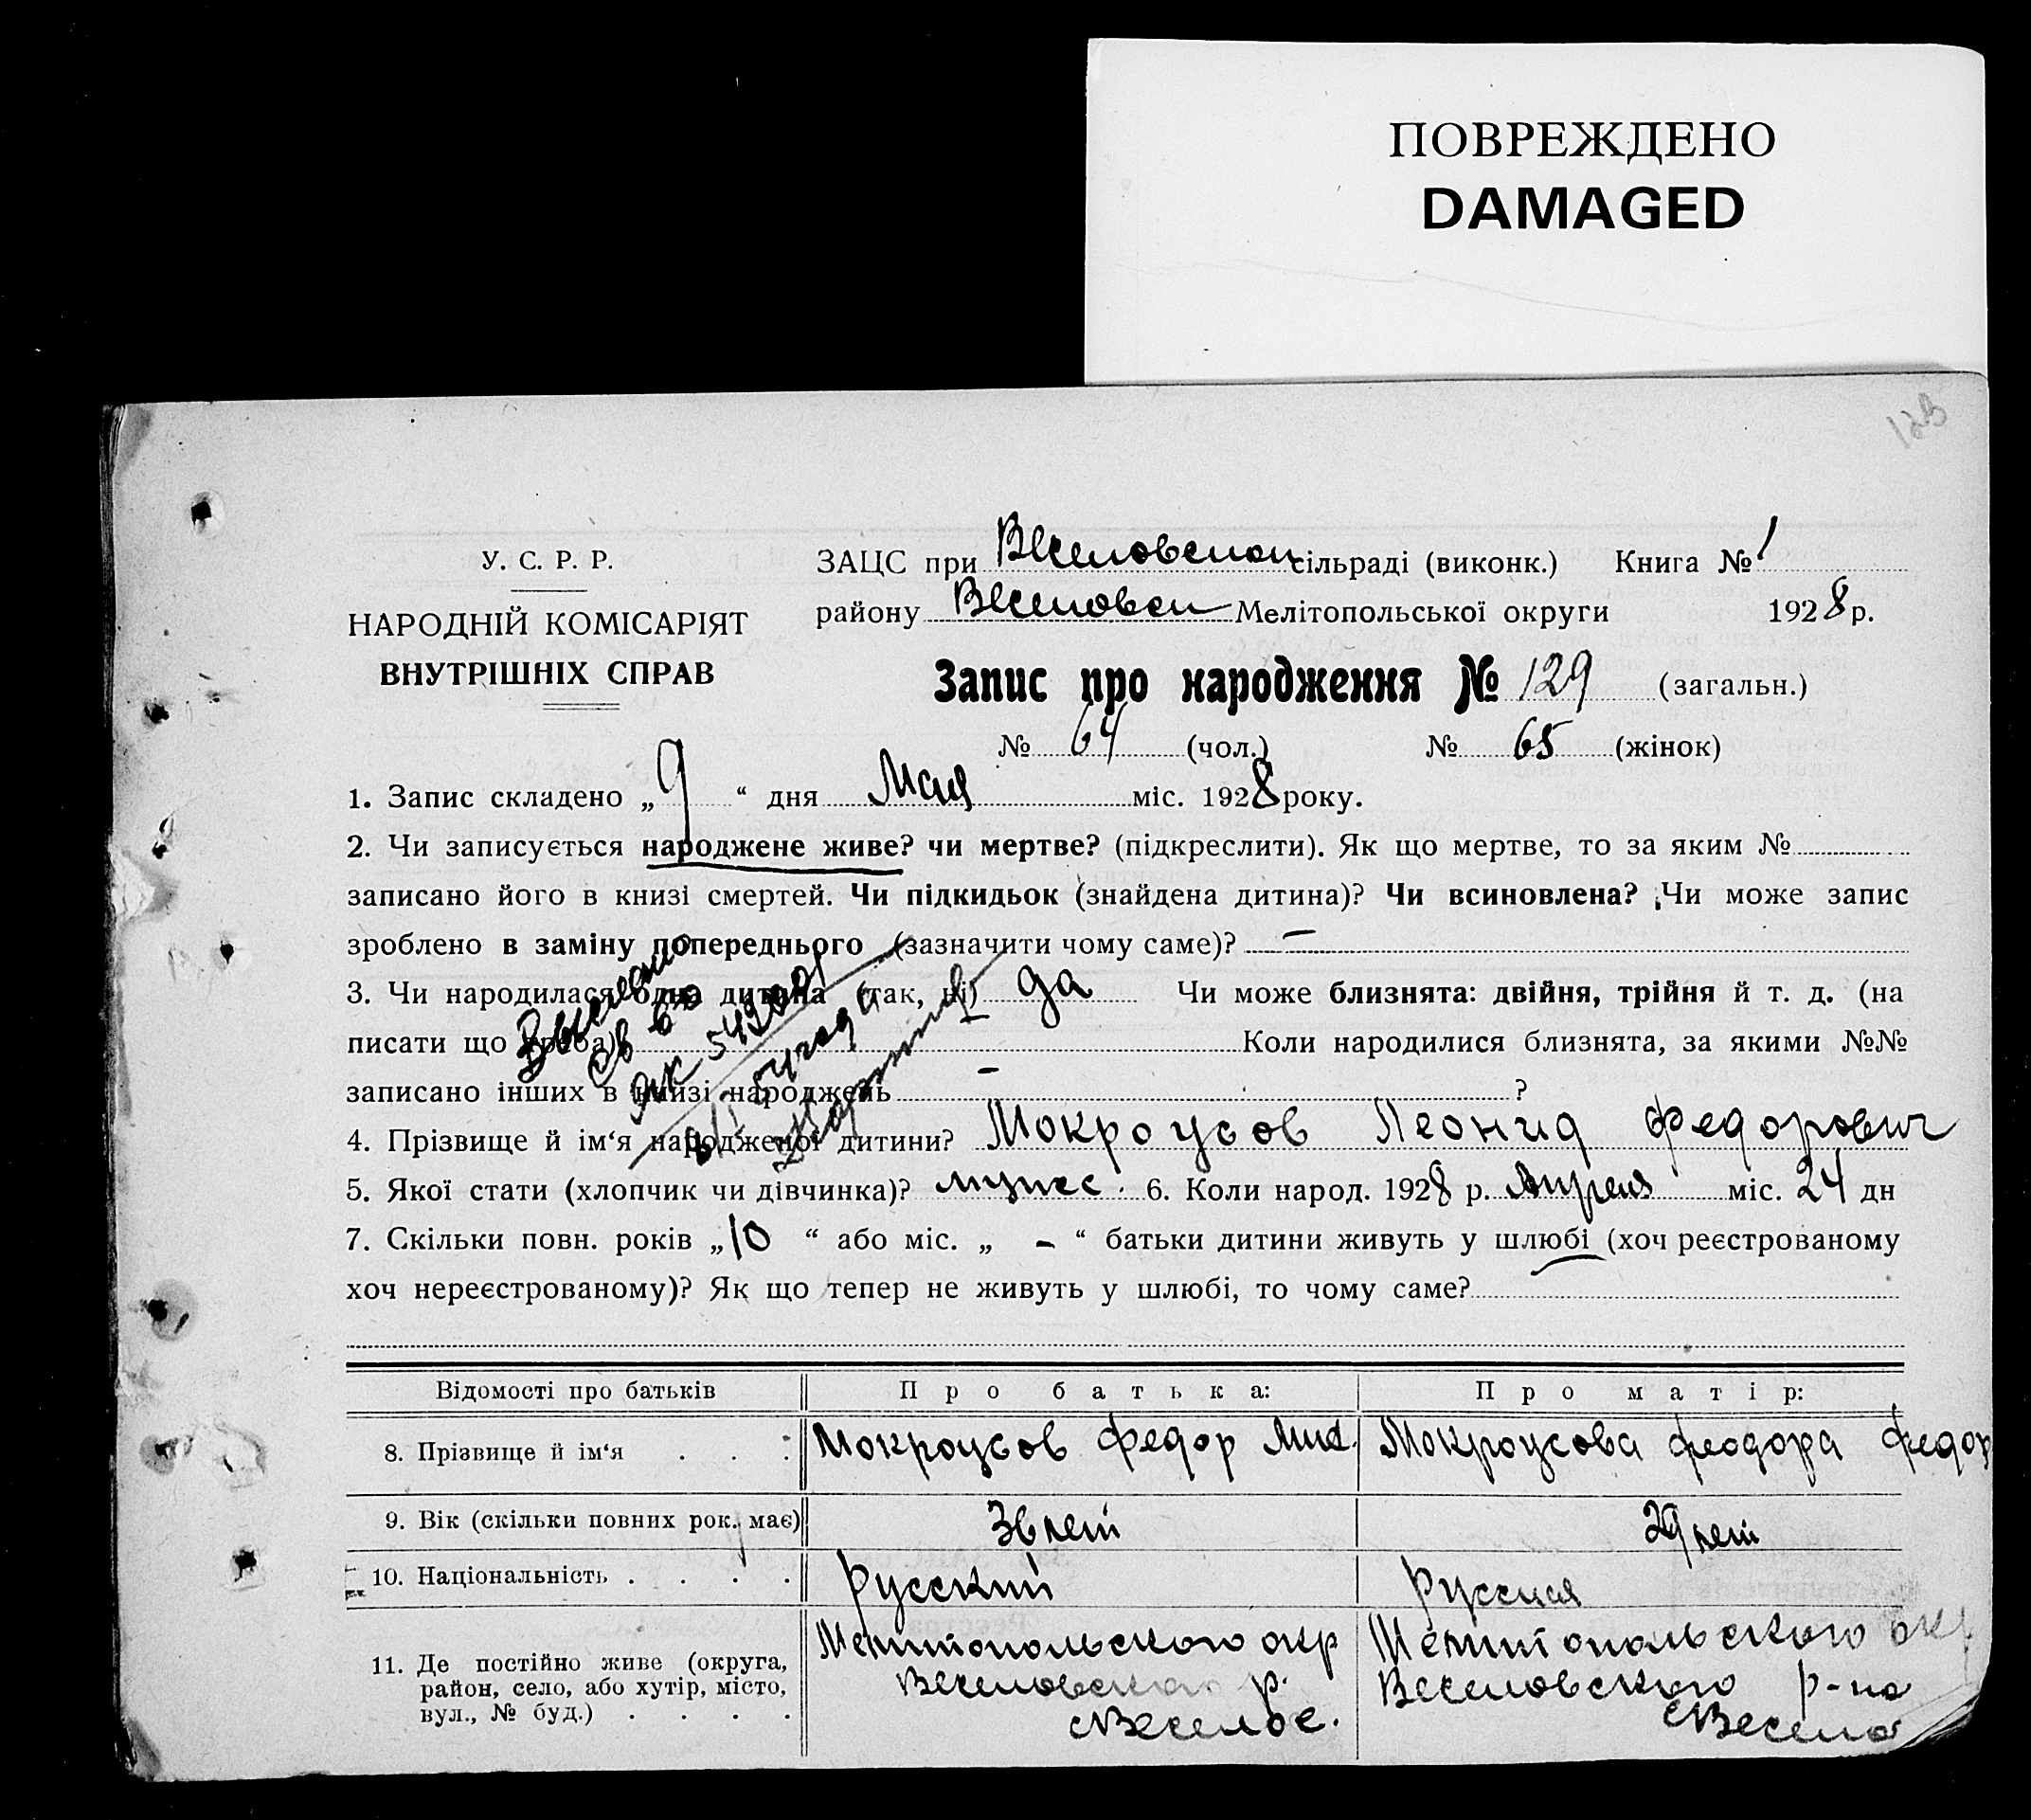 ПОВРЕЖДЕНО
DAMAGED
У. С. Р. Р.
НАРОДНІЙ КОМІСАРІЯТ
ВНУТРІШНІХ СПРАВ
ЗАЦС при Веселовском сільраді (виконк.) Книга № 1
району Веселовск Мелітопольської округи 1928 р.
Запис про народження № 129 (загальн.)
№ 64 (чол.) № 65 (жінок)
1. Запис складено „ 9 “ дня Мая міс. 1928 року.
2. Чи записується народжене живе? чи мертве? (підкреслити). Як що мертве, то за яким №
записано його в книзі смертей. Чи підкидьок (знайдена дитина)? Чи всиновлена? Чи може запис
зроблено в заміну попереднього (зазначити чому саме)? —
3. Чи народилася одна дитина (так, ні) да Чи може близнята: двійня, трійня й т. д. (на
писати що треба) Коли народилися близнята, за якими №№
записано інших в книзі народжень — ?
4. Прізвище й ім‘я народженої дитини? Мокроусов Леонид Федорович
5. Якої стати (хлопчик чи дівчинка)? мужс. 6. Коли народ. 1928 р. Апреля міс. 24 дн
7. Скільки повн. років „ 10 “ або міс. „ - “ батьки дитини живуть у шлюбі (хоч реєстрованому
хоч нереєстрованому)? Як що тепер не живуть у шлюбі, то чому саме?
Відомості про батьків Про батька: Про матір:
8. Прізвище й ім‘я . . . Мокроусов Федор Мих. Мокроусова Феодора Федор
9. Вік (скільки повних рок. має) 36 лет 29 лет
10. Національність . . . . Русский Русская
11. Де постійно живе (округа, район, село, або хутір, місто, вул., № буд.) . . . . Мелитопольского окр Веселовского р. с Веселое. Мелитопольского окр Веселовского р-на с Весело